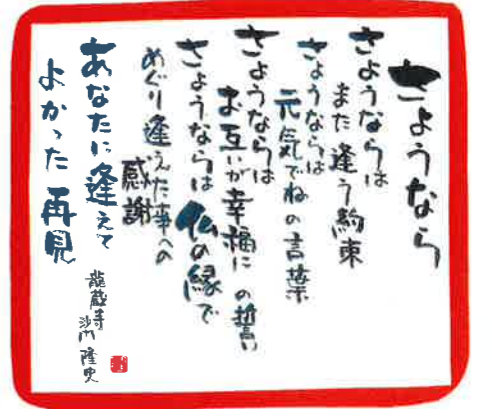 さようなら
さようならは
また逢う約束
さようならは
元気でねの言葉
さようならは
お互いが幸福にの誓い
さようならは仏の縁で
めぐり逢えた事への
感謝
あなたに逢えて
よかった再見
龍蔵寺
隆史